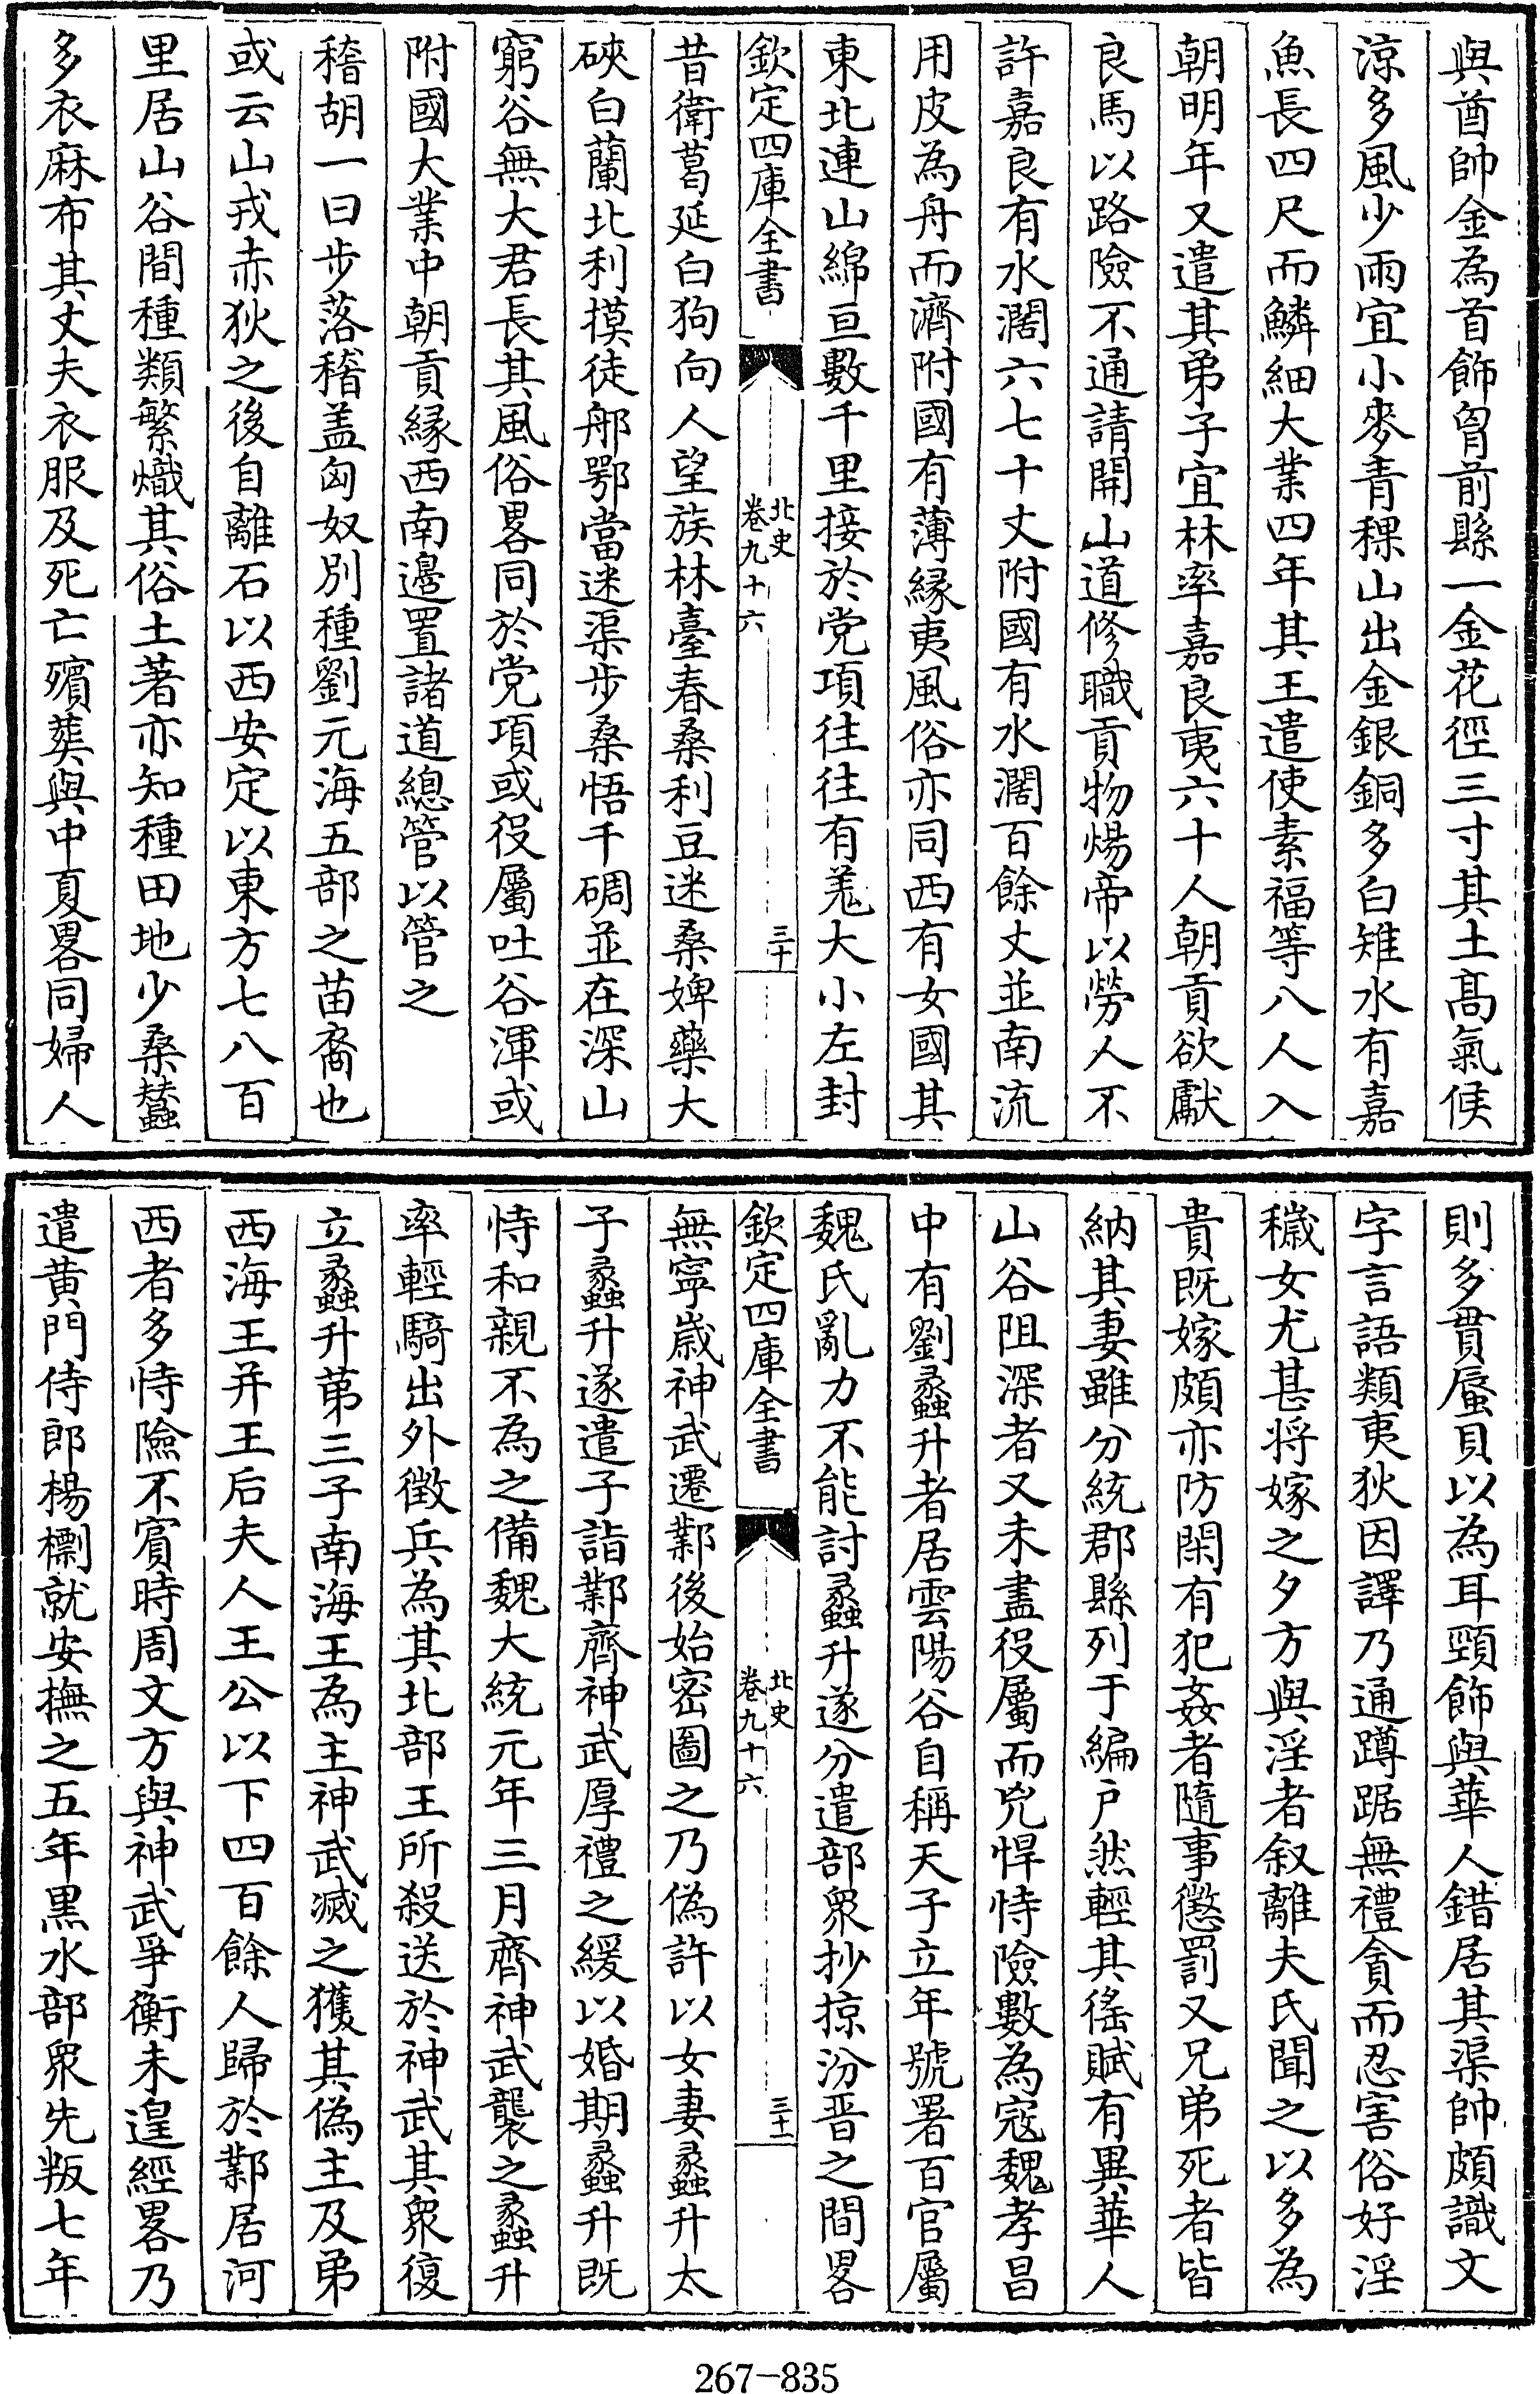 與酋帥金為首飾胷前縣一金花徑三寸其土髙氣候
涼多風少雨宜小麥青稞山出金銀銅多白雉水有嘉
魚長四尺而鱗細大業四年其王遣使素福等八人入
朝明年又遣其弟子宜林率嘉良夷六十人朝貢欲獻
良馬以路險不通請開山道修職貢物煬帝以勞人不
許嘉良有水濶六七十丈附國有水濶百餘丈並南流
用皮為舟而濟附國有薄緣夷風俗亦同西有女國其
東北連山綿亘數千里接於党項往往有羌大小左封
欽定四庫全書
北史
卷九十六
三十
昔衛葛延白狗向人望族林臺春桑利豆迷桑婢藥大
硤白蘭北利摸徒郍鄂當迷渠步桑悟千碉並在深山
窮谷無大君長其風俗畧同於党項或役屬吐谷渾或
附國大業中朝貢緣西南邊置諸道總管以管之
稽胡一曰步落稽盖匈奴別種劉元海五部之苗裔也
或云山戎赤狄之後自離石以西安定以東方七八百
里居山谷間種類繁熾其俗土著亦知種田地少桑蠶
多衣麻布其丈夫衣服及死亡殯葬與中夏畧同婦人
則多貫蜃貝以為耳頸飾與華人錯居其渠帥頗識文
字言語類夷狄因譯乃通蹲踞無禮貪而忍害俗好淫
穢女尤甚将嫁之夕方與淫者叙離夫氏聞之以多為
貴既嫁頗亦防閑有犯姦者隨事懲罰又兄弟死者皆
納其妻雖分統郡縣列于編户然輕其徭賦有異華人
山谷阻深者又未盡役屬而兇悍恃險數為寇魏孝昌
中有劉蠡升者居雲陽谷自稱天子立年號署百官屬
魏氏亂力不能討蠡升遂分遣部衆抄掠汾晋之間畧
欽定四庫全書
北史
卷九十六
三十一
無寧歳神武遷鄴後始密圖之乃偽許以女妻蠡升太
子蠡升遂遣子詣鄴齊神武厚禮之緩以婚期蠡升既
恃和親不為之備魏大統元年三月齊神武襲之蠡升
率輕騎出外徵兵為其北部王所殺送於神武其衆復
立蠡升第三子南海王為主神武滅之獲其偽主及弟
西海王并王后夫人王公以下四百餘人歸於鄴居河
西者多恃險不賔時周文方與神武爭衡未遑經畧乃
遣黄門侍郎楊㯹就安撫之五年黒水部衆先叛七年
267-835